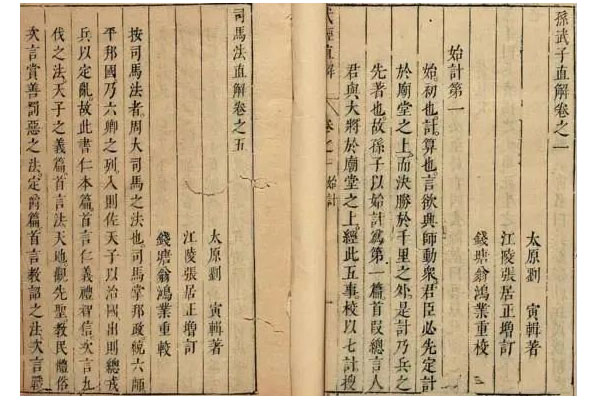 孫武子直解卷之一
太原劉 寅輯著
江陵張居正增訂
錢塘翁鴻業重校
始計第一
始初也計算也言欲興師動衆君臣必先定計
於廟堂之上而決勝於千里之外是計乃兵之
先著也故孫子以始計爲第一篇首段總言人
君與大將於廟堂之上經此五事校以七計搜
武經直解 卷之一 始計
司馬法直解卷之五
太原劉 寅輯著
江陵張居正增訂
錢塘翁鴻業重較
按司馬法者周大司馬之法也司馬掌邦政統六師
平邦國乃六卿之列入則佐天子以治國出則總戎
兵以定亂故此書仁本篇首言仁義禮智信次言九
伐之法天子之義篇首言法天地觀先聖教民體俗
次言賞善罰惡之法定爵篇首言教詔之法次言戰